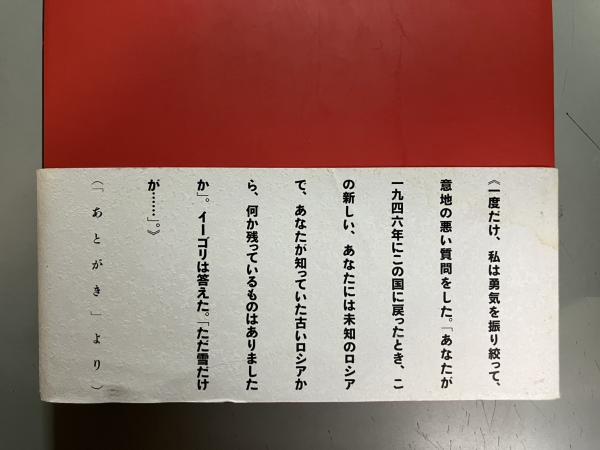 《一度だけ、私は勇気を振り絞って、
意地の悪い質問をした。「あなたが
一九四六年にこの国に戻ったとき、こ
の新しい、あなたには未知のロシア
で、あなたが知っていた古いロシアか
ら、何か残っているものはありました
か」。イーゴリは答えた。「ただ雪だけ
が……」。》
(「あとがき」より)